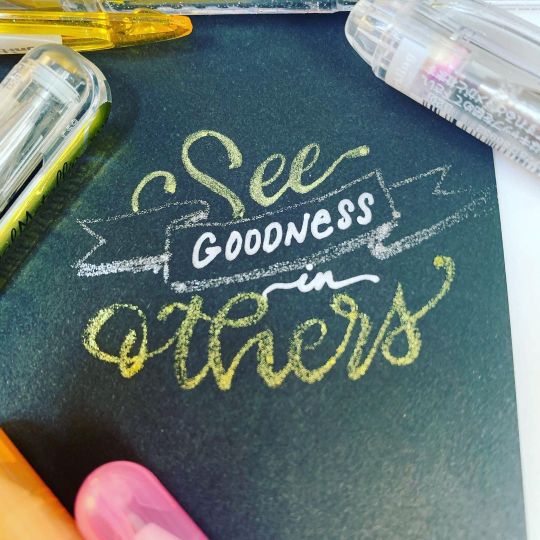 See
GOODNESS
in
Others